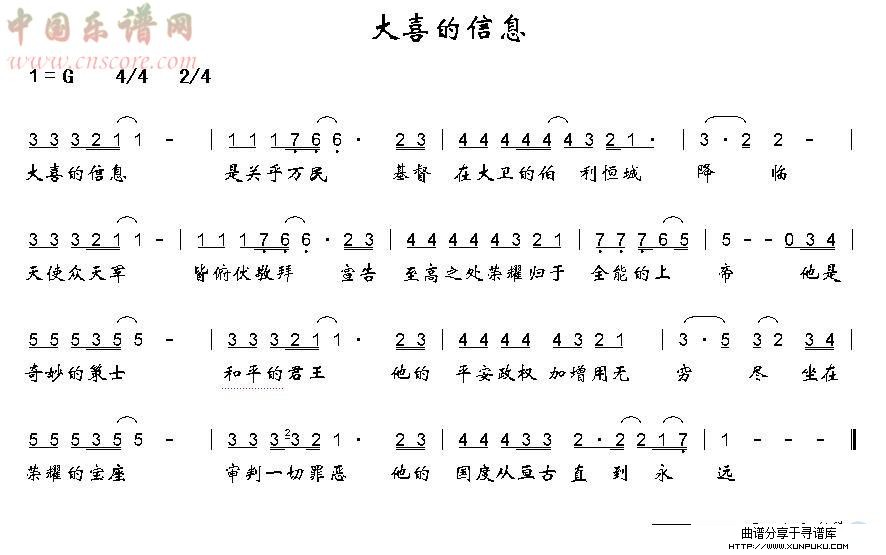 大喜的信息
中国乐谱网
www.cnscore.com
1 = G 4/4 2/4
3 3 3 2 1 1 - | 1 1 1 7 6 6 · 2 3 | 4 4 4 4 4 4 3 2 1 · | 3 · 2 2 - |
大喜的信息 是关乎万民 基督 在大卫的伯 利恒城 降 临
3 3 3 2 1 1 - | 1 1 1 7 6 6 · 2 3 | 4 4 4 4 4 3 2 1 | 7 7 7 6 5 | 5 - - 0 3 4 |
天使众天军 皆俯伏敬拜 宣告 至高之处荣耀归于 全能的上 帝 他是
5 5 5 3 5 5 - | 3 3 3 2 1 1 · 2 3 | 4 4 4 4 4 3 2 1 | 3 · 5 3 2 3 4 |
奇妙的策士 和平的君王 他的 平安政权 加增用无 穷 尽 坐在
5 5 5 3 5 5 - | 3 3 3 2 3 2 1 · 2 3 | 4 4 4 3 3 2 · 2 2 1 7 | 1 - - ‖
荣耀的宝座 审判一切罪恶 他的 国度从亘古 直 到 永 远
曲谱分享于寻谱库
HTTP://WWW.XUNPUKU.COM